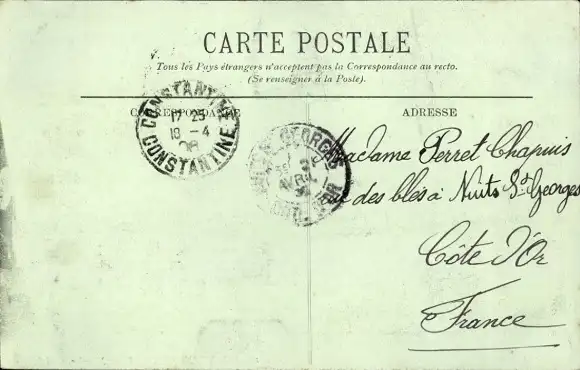 CARTE POSTALE
Tous les Pays étrangers n'acceptent pas la Correspondance au recto.
(Se renseigner à la Poste).
CORRESPONDANCE
ADRESSE
CONSTANTINE
17 25
18 - 4
08
CONSTANTINE
GEORGES
AVRIL
D'OR
Madame Perret Chapuis
rue des blés à Nuits St Georges
Côte d'Or
France